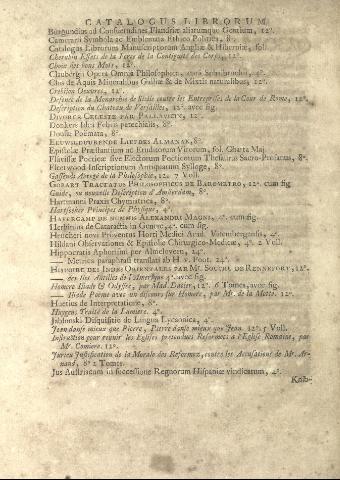 CATALOGUS LIBRORUM
Burgundius ad Consuetudines Flandriæ aliarumque Gentium, 12°.
Camerarii Symbola ac Emblemata Ethico Politica, 8°.
Catalogus Librorum Manuscriptorum Angliæ & Hiberniæ, fol.
Cherubin Effets de la Force de la Contiguité des Corps, 12°.
Choix des bons Mots, 12°.
Claubergii Opera Omnia Philosophica, cura Schalbruchii, 4°.
Clos de Aquis Mineralibus Galliæ & de Mixtis naturalibus, 12°.
Crespin Oeuvres, 12°.
Defense de la Monarchie de Sicile contre les Entreprises de la Cour de Rome, 12°.
Description du Chateau de Versailles, 12°. avec fig.
DIVORCE CELESTE PAR PALLAVICIN, 12°.
Donkers Idea Febris petechialis, 8°.
Dousæ Poëmata, 8°.
EEUWIGDUURENDE LIEFDES ALMANAK, 8°.
Epistolæ Præstantium ac Eruditorum Virorum, fol. Charta Maj.
Flavissæ Poeticæ sive Electorum Poeticorum Thesaurus Sacro-Profanus, 8°.
Fleetwood Inscriptionum Antiquarum Sylloge, 8°.
Gassendi Abregé de la Philosophie, 12°. 7 Voll.
GOBART TRACTATUS PHILOSOPHICUS DE BAROMETRO, 12°. cum fig.
Guide, ou nouvelle Description d'Amsterdam, 8°.
Hartmanni Praxis Chymiatrica, 8°.
Hartsoeker Principes de Physique, 4°.
HAVERCAMP DE NUMMIS ALEXANDRI MAGNI, 4°. cum fig.
Herbinius de Cataractis in Genere, 4°. cum fig.
Heucheri novi Proventus Horti Medici Acad. Vitembergensis, 4°.
Hildani Observationes & Epistolæ Chirurgico-Medicæ, 4°. 2 Voll.
Hippocratis Aphorismi per Almeloveen, 24°.
— Metrica paraphrasi translati ab H. v. Poort. 24°.
HISTOIRE DES INDES ORIENTALES PAR MR. SOUCHU DE RENNEFORT, 12°.
— des Iles Antilles de l'Amerique 4°. avec fig.
Homere Iliade & Odyssée, par Mad. Dacier, 12°. 6 Tomes, avec fig.
— Iliade Poëme avec un discours sur Homere, par Mr. de la Motte. 12°.
Huetius de Interpretatione, 8°.
Huygens Traité de la Lumiere. 4°.
Jablonski Disquisitio de Lingua Lycaonica, 4°.
Jean danse mieux que Pierre, Pierre danse mieux que Jean. 12°. 5 Voll.
Instruction pour reunir les Eglises pretendues Reformées à l'Eglise Romaine, par
Mr. Comiers. 12°.
Jurieu Justification de la Morale des Reformez, contre les Accusations de Mr. Ar-
nand, 8°. 2 Tomes.
Jus Austriacum in successione Regnorum Hispaniæ vindicatum, 4°.